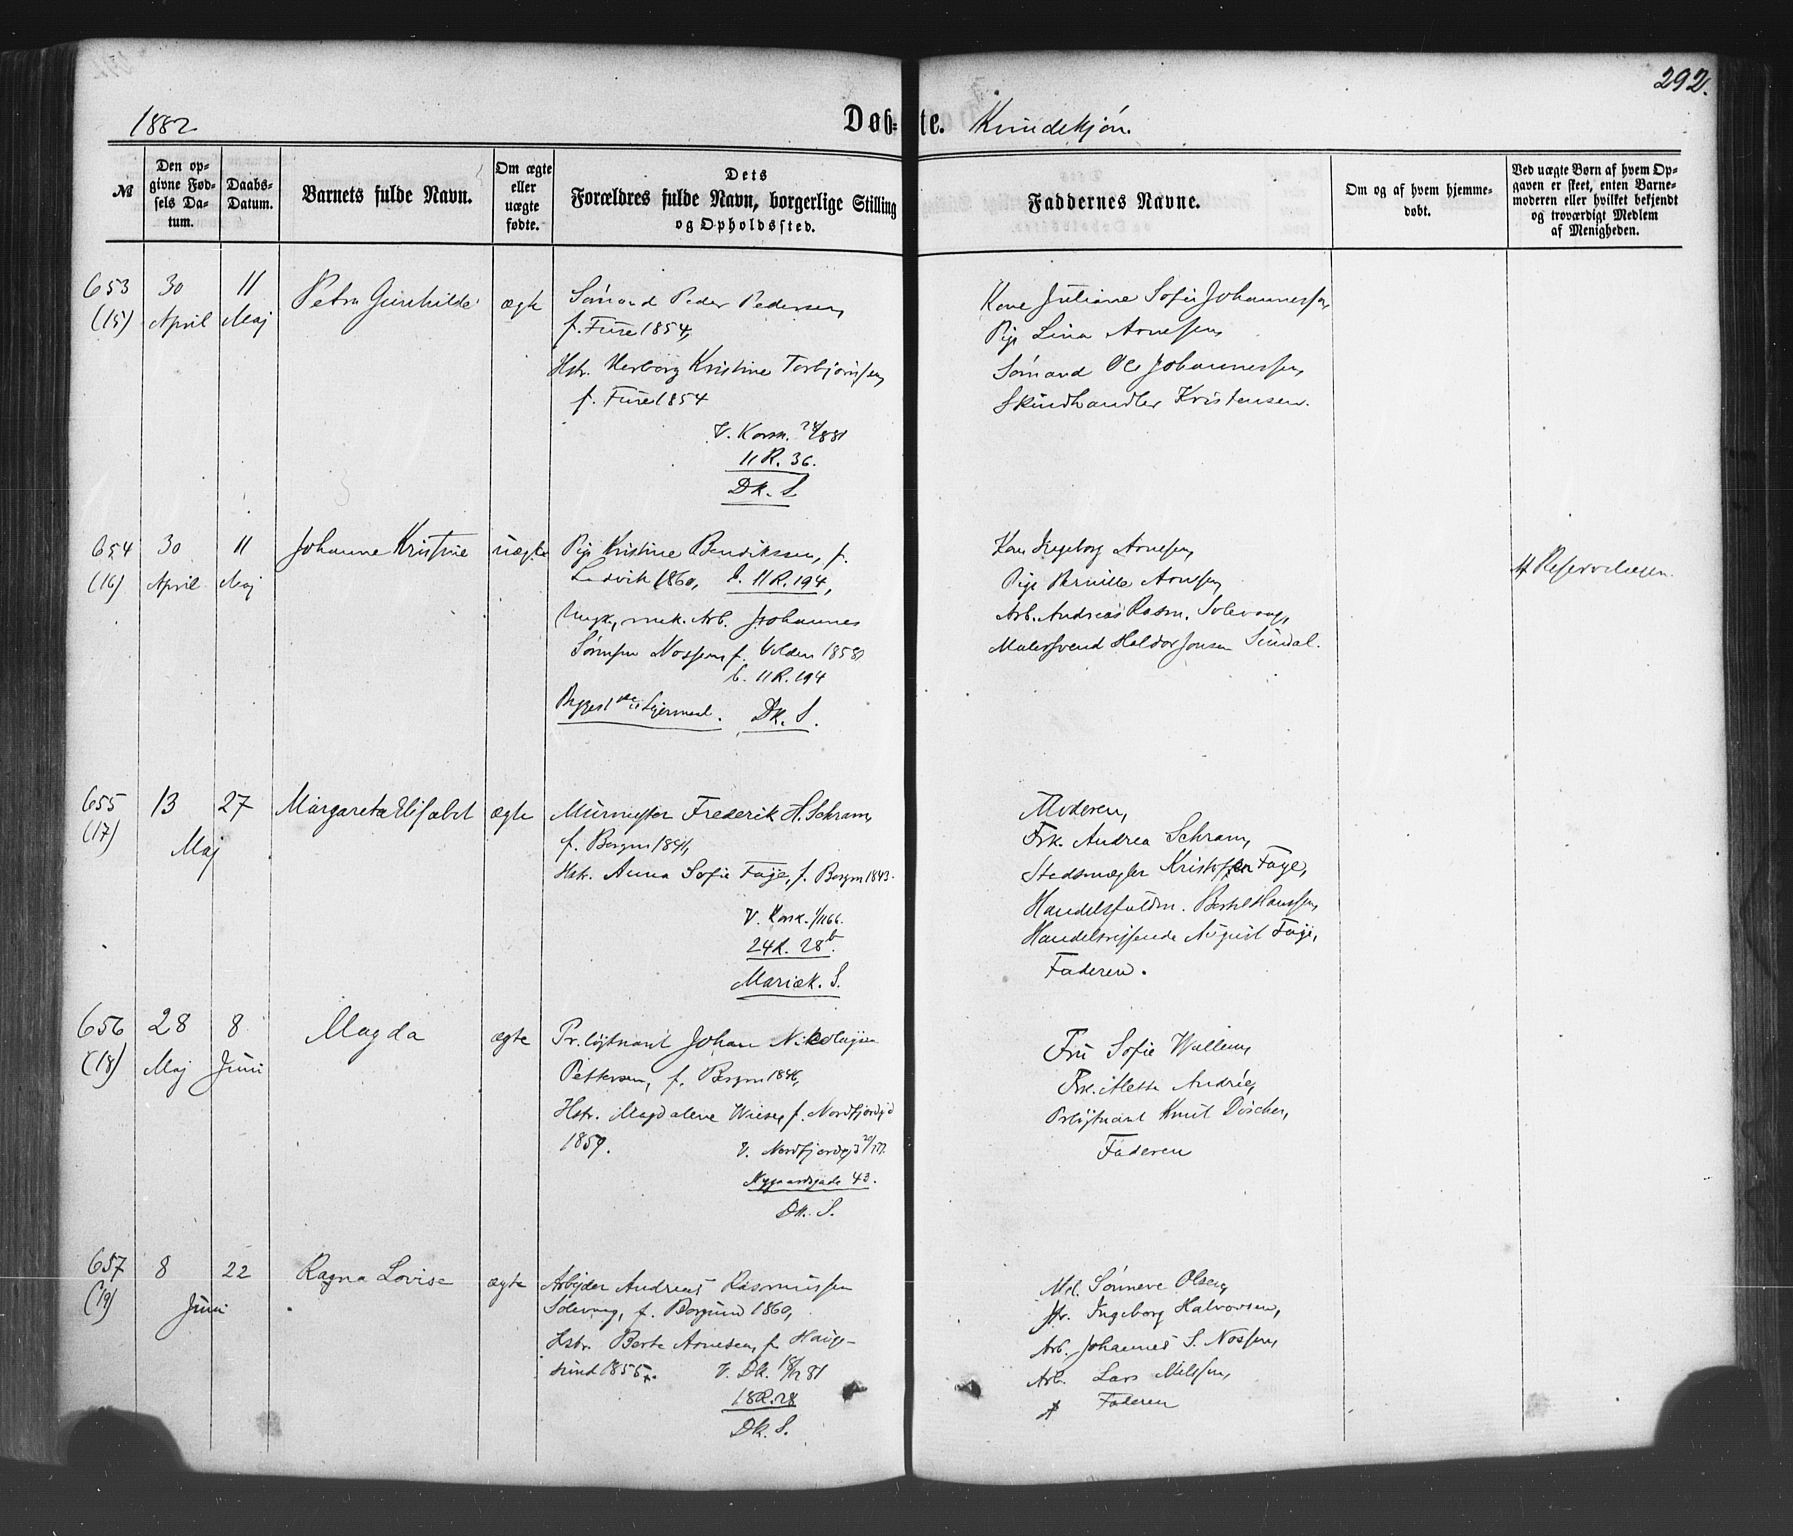 292.
1882
Døbte. Kvindekjøn.
№
Den opgivne Fødsels Datum.
Daabs-Datum.
Barnets fulde Navn.
Om ægte eller uægte fødte.
Dets Forældres fulde Navn, borgerlige Stilling og Opholdssted.
Faddernes Navne.
Om og af hvem hjemmedøbt.
Ved uægte Børn af hvem Opgaven er skeet, enten Barnemoderen eller hvilket bekjendt og troværdigt Medlem af Menigheden.
653
(15)
30
April
11
Maj
Petra Gunhilde
ægte
Sømand Peder Pedersen,
f. Fure 1854,
Hstr. Herborg Kristine Torbjørnsen,
f. Fure 1854
V. Korsk. 1881
11 R. 36.
Dk. S.
Kone Juliane Sofie Johannessen
Pige Lina Arnesen,
Sømand Ole Johannessen,
Skindhandler Kristensen.
654
(16)
30
April
11
Maj
Johanne Kristine
uægte
Pige Kristine Bendiksen, f.
Ladvik 1860, b. 11 R. 194,
Ungk., mek. Arb. Johannes
Sørensen Nossen, f. Volden 1858
b. 11 R. 194
Begges 1ste Lejermaal. Dk. S.
Kone Ingeborg Arnesen,
Pige Pernille Arnesen,
Arb. Andreas Rasm. Solevaag,
Malersvend Haldor Jonsen Sundal.
655
(17)
13
Maj
27
Margareta Elisabet
ægte
Murmester Frederik H. Schram,
f. Bergen 1841,
Hstr. Anna Sofie Faye, f. Bergen 1843.
V. Korsk. 1866.
24 R. 28b.
Mariæk. S.
Moderen,
Frk. Andrea Schram,
Stadsmægler Kristoffer Faye,
Handelsfuldm. Bertel Hanssen,
Handelsreisende August Faye,
Faderen.
656
(18)
28
Maj
8
Juni
Magda
ægte
Pr.løjtnant Johan Nikolaysen
Pettersen, f. Bergen 1846,
Hstr. Magdalene Wiese, f. Nordfjordejd
1857.
V. Nordfjordejd
Nygaardsgade 43.
Dk. S.
Fru Sofie Willem,
Frk. Mette Andrée,
Prløjtnant Knut Döscher,
Faderen
657
(19)
8
Juni
22
Ragna Lovise
ægte
Arbejder Andreas Rasmussen
Solevaag, f. Borgund 1860,
Hstr. Berte Arnesen, f. Haugesund 1855.
V. Dk. 18/12 81
18 R. 28
Dk. S.
Md. Sønneve Olsen,
Ingeborg Halvorsen,
Arb. Johannes S. Nossen,
Arb. Lars Nilssen,
Faderen